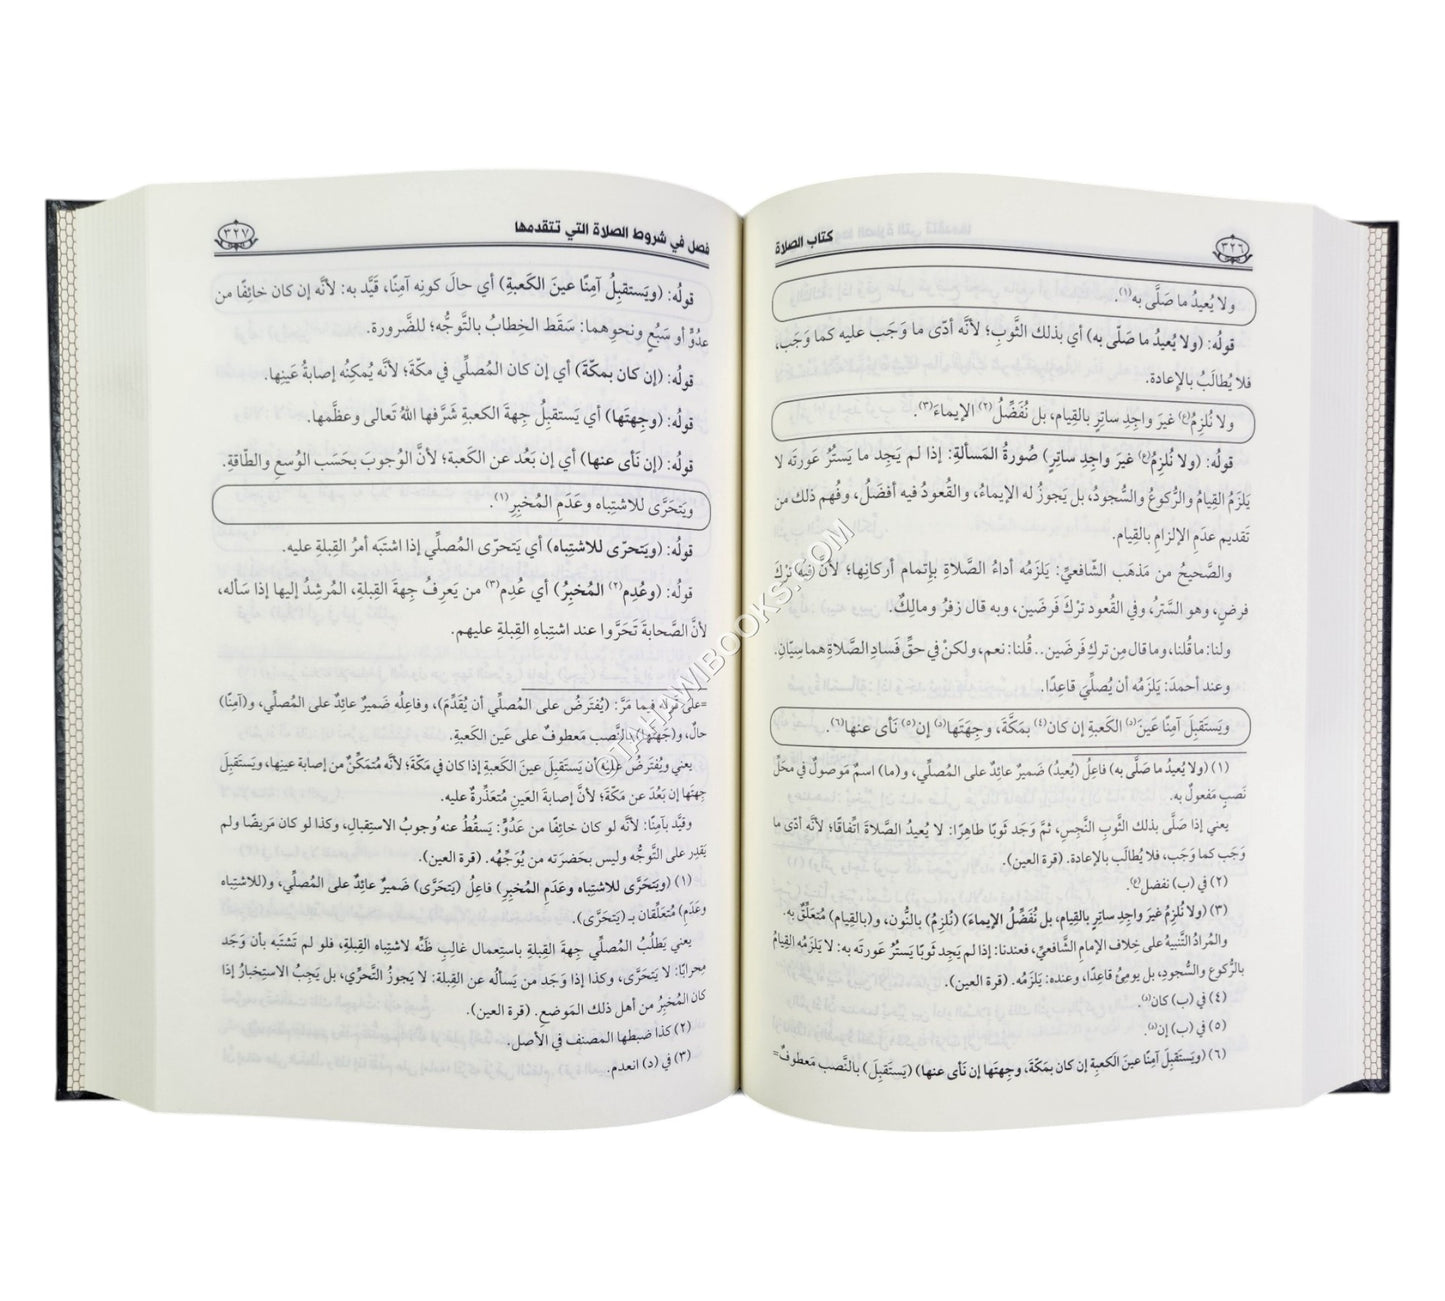 ٣٢٦
كتاب الصلاة
ولا يُعيدُ ما صَلَّى به(١).
قولُه: (ولا يُعيدُ ما صلّى به) أي بذلك الثَّوبِ؛ لأنَّه أدّى ما وَجَب عليه كما وَجَب،
فلا يُطالَبُ بالإعادة.
ولا نُلزِمُ(ع) غيرَ واجِدِ ساتِرٍ بالقِيام، بل نُفَضِّلُ(٢) الإيماءَ(٣).
قولُه: (ولا نُلزِمُ(ع) غيرَ واجِدِ ساتِرٍ) صُورةُ المَسألةِ: إذا لم يَجِد ما يَستُرُ عَورتَه لا
يَلزَمُ القِيامُ والرُّكوعُ والسُّجودُ، بل يَجوزُ له الإيماءُ، والقُعودُ فيه أفضَلُ، وفُهِم ذلك من
تَقديم عدَمِ الإلزامِ بالقِيام.
والصَّحيحُ من مَذهَب الشّافعيِّ: يَلزَمُه أداءُ الصَّلاةِ بإتمام أركانِها؛ لأنَّ فيه تركَ
فرضٍ، وهو السَّترُ، وفي القُعود تركَ فَرضَين، وبه قال زفرُ ومالِكٌ.
ولنا: ما قُلنا، وما قال مِن تركِ فَرضَين.. قُلنا: نعم، ولكنْ في حقِّ فَسادِ الصَّلاةِ هما سِيّانِ.
وعند أحمدَ: يَلزَمُه أن يُصلِّيَ قاعِدًا.
ويَستَقبِلَ آمِنًا عَينَ(د) الكَعبةِ إن كان(٤) بمَكَّةَ، وجِهَتَها(د) إن(٥) نَأى عنها(٦).
(١) (ولا يُعيدُ ما صلَّى به) فاعِلُ (يُعيدُ) ضَميرٌ عائِدٌ على المُصلِّي، و(ما) اسمٌ مَوصولٌ في محَلِّ
نَصبٍ مَفعولٌ به.
يعني إذا صَلَّى بذلك الثَّوبِ النَّجِسِ، ثمَّ وَجَد ثَوبًا طاهِرًا: لا يُعيدُ الصَّلاةَ اتِّفاقًا؛ لأنَّه أدّى ما
وَجَب كما وَجَب، فلا يُطالَب بالإعادة. (قرة العين).
(٢) في (ب) نفضل(ع).
(٣) (ولا نُلزِمُ غيرَ واجِدِ ساتِرٍ بالقِيام، بل نُفَضِّلُ الإيماءَ) (نُلزِمُ) بالنُّون، و(بالقِيام) مُتعَلِّقٌ به.
والمُرادُ التَّنبيهُ على خِلاف الإمامِ الشّافعيِّ، فعندنا: إذا لم يَجِد ثَوبًا يَستُرُ عَورتَه به: لا يَلزَمُه القِيامُ
بالرُّكوع والسُّجودِ، بل يومِئُ قاعِدًا، وعنده: يَلزَمُه. (قرة العين).
(٤) في (ب) كان(د).
(٥) في (ب) إن(د).
(٦) (ويَستَقبِلَ آمِنًا عينَ الكَعبةِ إن كان بمَكَّةَ، وجِهتَها إن نَأى عنها) (يَستَقبِلَ) بالنَّصب مَعطوفٌ=
فصل في شروط الصلاة التي تتقدمها
٣٢٧
قولُه: (ويَستقبِلُ آمِنًا عينَ الكَعبةِ) أي حالَ كونِه آمِنًا، قَيَّد به: لأنَّه إن كان خائِفًا من
عدُوٍّ أو سَبُعٍ ونحوِهما: سَقَط الخِطابُ بالتَّوجُّه؛ للضَّرورة.
قولُه: (إن كان بمكّةَ) أي إن كان المُصلِّي في مكّةَ؛ لأنَّه يُمكِنُه إصابةُ عَينِها.
قولُه: (وجِهتَها) أي يَستقبِلُ جِهةَ الكعبةِ شَرَّفها اللهُ تَعالى وعظَّمها.
قولُه: (إن نَأى عنها) أي إن بَعُد عن الكَعبة؛ لأنَّ الوُجوبَ بحَسَب الوُسعِ والطّاقةِ.
ويَتَحَرَّى للاشتِباه وعَدَمِ المُخبِرِ(١).
قولُه: (ويَتحرّى للاشتِباه) أي يَتحرّى المُصلِّي إذا اشتَبَه أمرُ القِبلةِ عليه.
قولُه: (وعُدِم(٢) المُخبِرُ) أي عُدِم(٣) من يَعرِفُ جِهةَ القِبلةِ، المُرشِدُ إليها إذا سَأله،
لأنَّ الصَّحابةَ تَحَرَّوا عند اشتِباهِ القِبلةِ عليهم.
=على قوله فيما مَرَّ: (يُفتَرَضُ على المُصلِّي أن يُقَدِّمَ)، وفاعِلُه ضَميرٌ عائِدٌ على المُصلِّي، و(آمِنًا)
حالٌ، و(جِهَتَها) بالنَّصب مَعطوفٌ على عَين الكَعبةِ.
يعني ويُفتَرَضُ عليه أن يَستَقبِلَ عينَ الكَعبةِ إذا كان في مَكّةَ؛ لأنَّه مُتمَكِّنٌ من إصابة عينِها، ويَستَقبِلَ
جِهتَها إن بَعُدَ عن مَكّةَ؛ لأنَّ إصابةَ العَينِ مُتعَذِّرةٌ عليه.
وقَيَّد بآمِنًا: لأنَّه لو كان خائِفًا من عَدُوٍّ: يَسقُطُ عنه وُجوبُ الاستِقبالِ، وكذا لو كان مَريضًا ولم
يَقدِر على التَّوجُّه وليس بحَضرَته من يُوَجِّهُه. (قرة العين).
(١) (ويَتحَرَّى للاشتِباه وعَدَمِ المُخبِرِ) فاعِلُ (يَتَحَرَّى) ضَميرٌ عائِدٌ على المُصلِّي، و(للاشتِباه
وعَدَمِ) مُتعَلِّقان بـ (يَتحَرَّى).
يعني يَطلُبُ المُصلِّي جِهةَ القِبلةِ باستِعمال غالِبِ ظَنِّه لاشتِباه القِبلةِ، فلو لم تَشتَبه بأن وَجَد
مِحرابًا: لا يَتحَرَّى، وكذا إذا وَجَد من يَسألُه عن القِبلة: لا يَجوزُ التَّحرِّي، بل يَجِبُ الاستِخبارُ إذا
كان المُخبِرُ من أهل ذلك المَوضعِ. (قرة العين).
(٢) كذا ضبطها المصنف في الأصل.
(٣) في (د) انعدم.
© TAHAWIBOOKS.COM